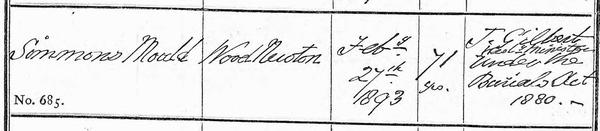 Simmons Mould
No. 685.
Wood Newton
Feb.y
27th
1893
71
yrs.
T. Gilbert
Under the
Burials Act
1880. —